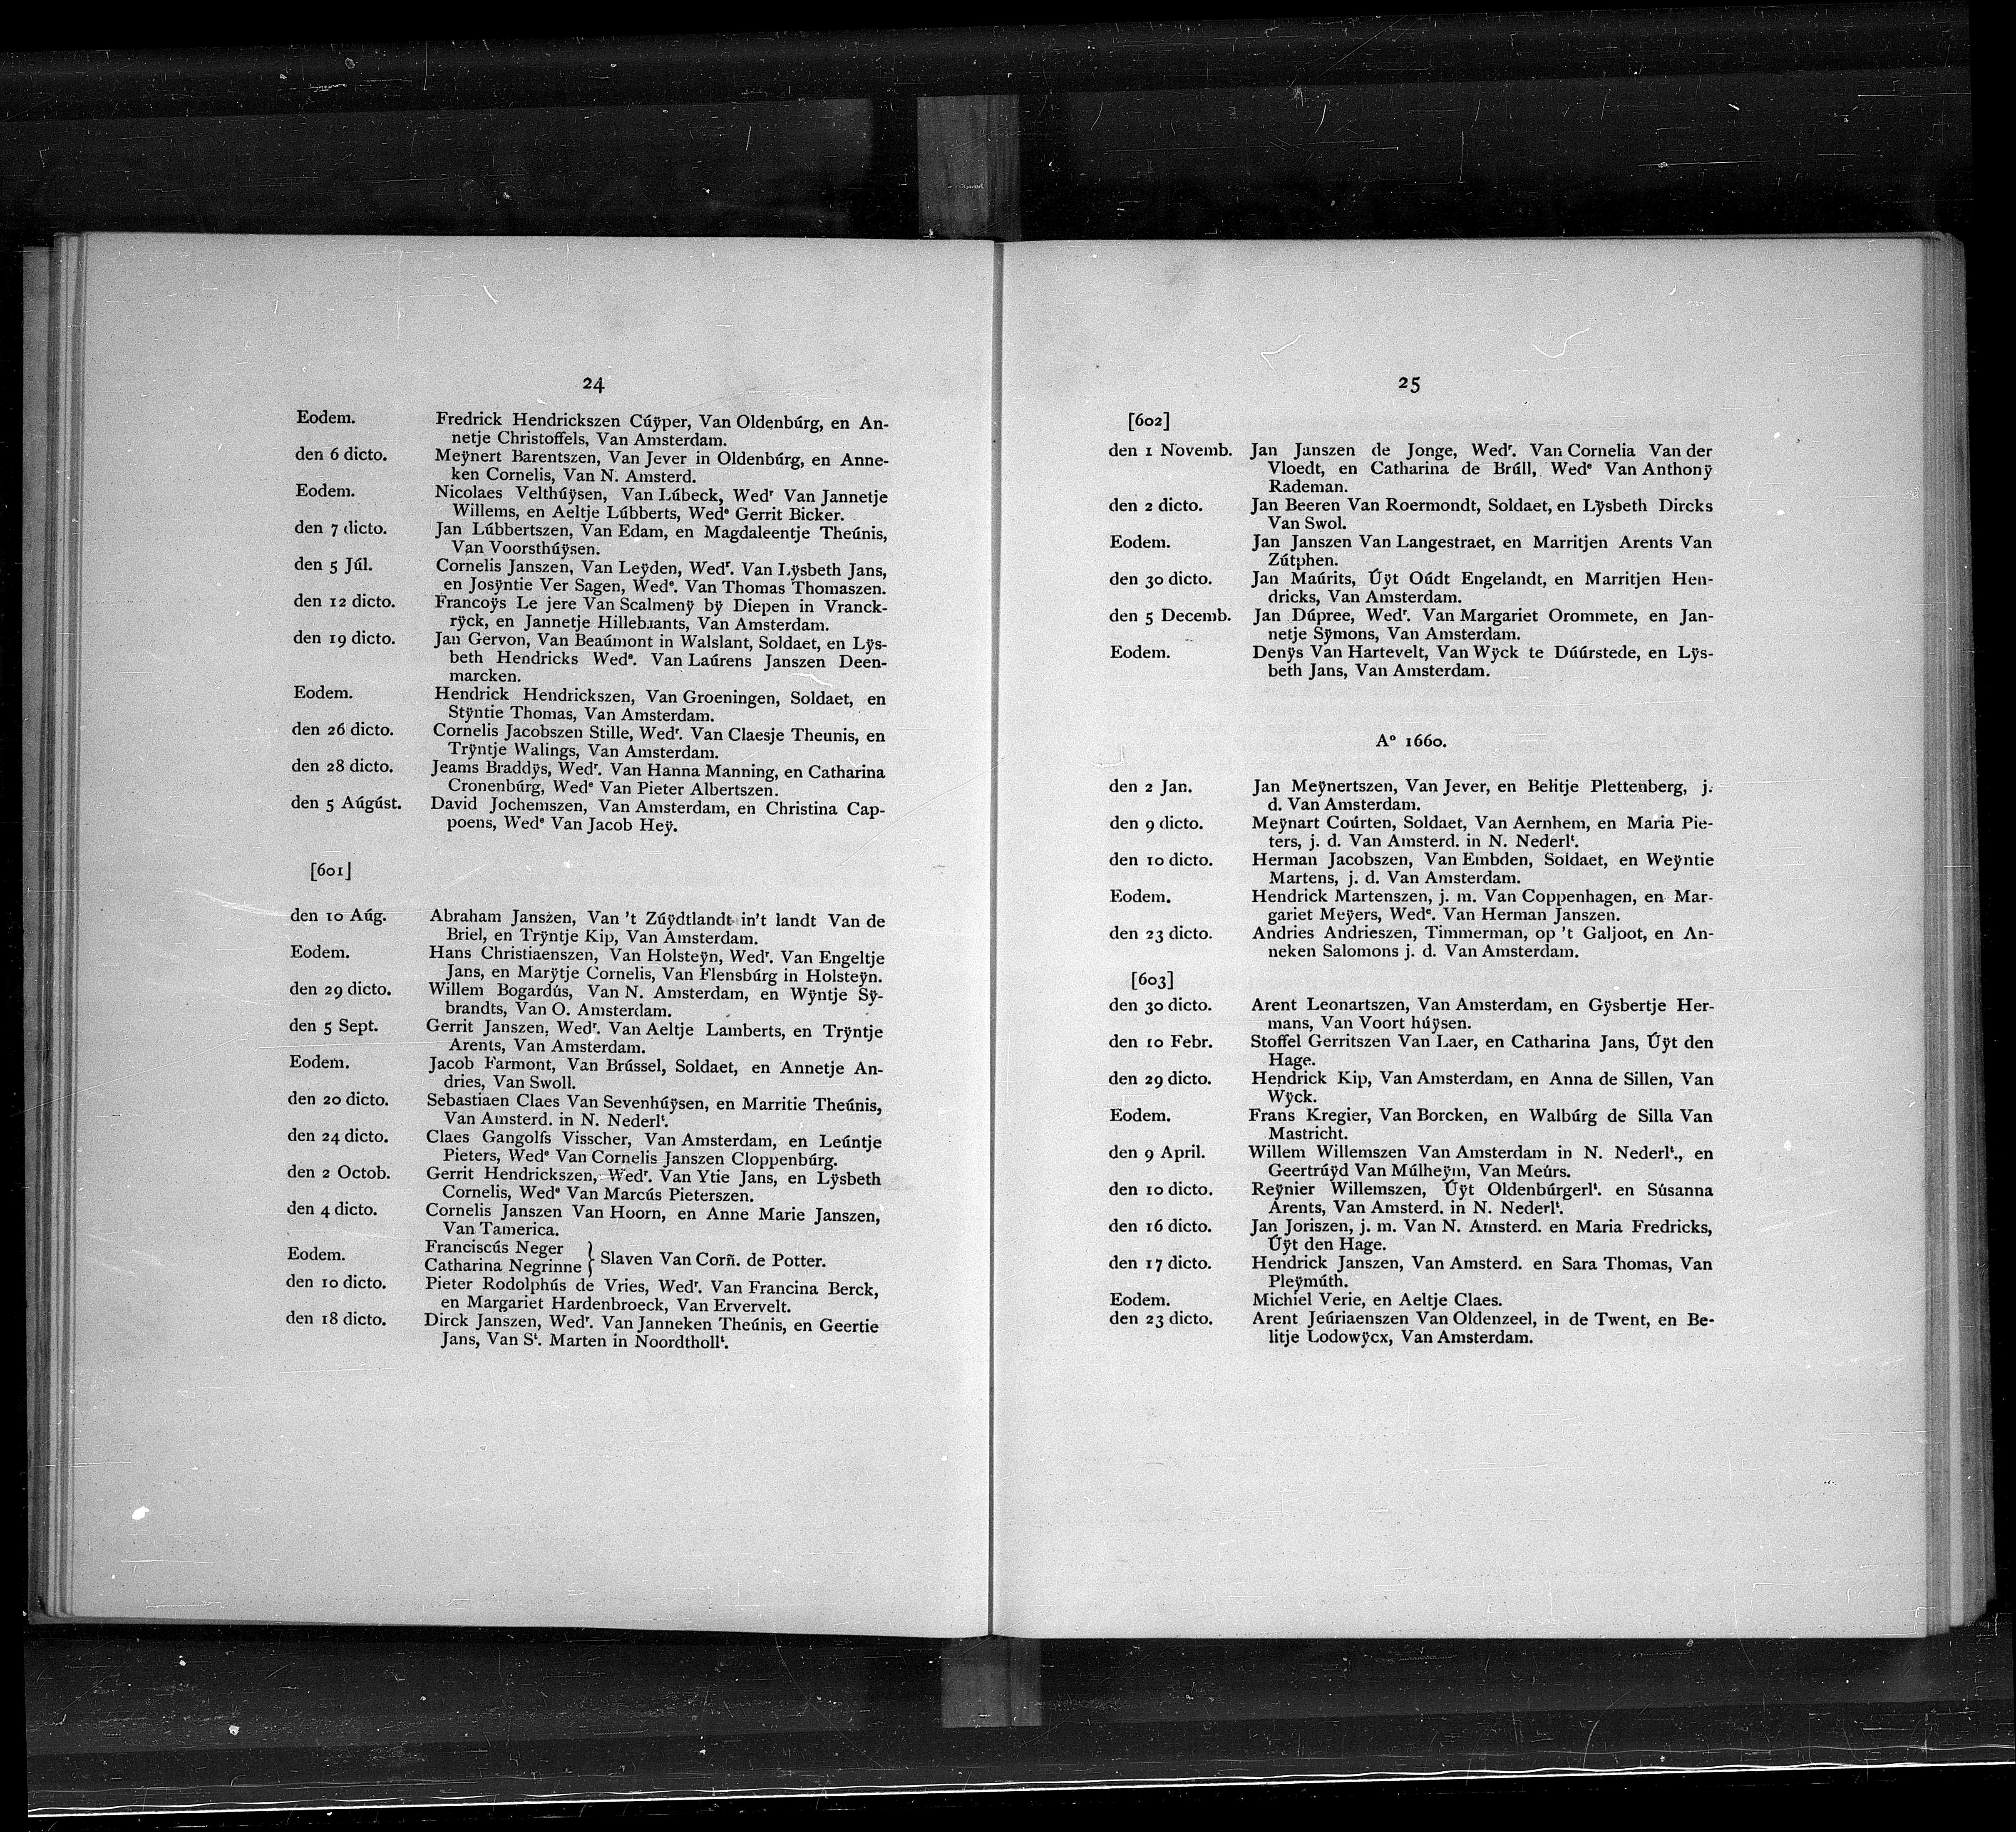 24
Eodem. Fredrick Hendrickszen Cúÿper, Van Oldenbúrg, en An-
netje Christoffels, Van Amsterdam.
den 6 dicto. Meÿnert Barentszen, Van Jever in Oldenbúrg, en Anne-
ken Cornelis, Van N. Amsterd.
Eodem. Nicolaes Velthúÿsen, Van Lúbeck, Wedʳ Van Jannetje
Willems, en Aeltje Lúbberts, Wedᵉ Gerrit Bicker.
den 7 dicto. Jan Lúbbertszen, Van Edam, en Magdaleentje Theúnis,
Van Voorsthúÿsen.
den 5 Júl. Cornelis Janszen, Van Leÿden, Wedʳ. Van Lÿsbeth Jans,
en Josÿntie Ver Sagen, Wedᵉ. Van Thomas Thomaszen.
den 12 dicto. Francoÿs Le jere Van Scalmenÿ bÿ Diepen in Vranck-
rÿck, en Jannetje Hillebrants, Van Amsterdam.
den 19 dicto. Jan Gervon, Van Beaúmont in Walslant, Soldaet, en Lÿs-
beth Hendricks Wedᵉ. Van Laúrens Janszen Deen-
marcken.
Eodem. Hendrick Hendrickszen, Van Groeningen, Soldaet, en
Stÿntie Thomas, Van Amsterdam.
den 26 dicto. Cornelis Jacobszen Stille, Wedʳ. Van Claesje Theunis, en
Trÿntje Walings, Van Amsterdam.
den 28 dicto. Jeams Braddÿs, Wedʳ. Van Hanna Manning, en Catharina
Cronenbúrg, Wedᵉ Van Pieter Albertszen.
den 5 Aúgúst. David Jochemszen, Van Amsterdam, en Christina Cap-
poens, Wedᵉ Van Jacob Heÿ.
[601]
den 10 Aúg. Abraham Janszen, Van 't Zúÿdtlandt in't landt Van de
Briel, en Trÿntje Kip, Van Amsterdam.
Eodem. Hans Christiaenszen, Van Holsteÿn, Wedʳ. Van Engeltje
Jans, en Marÿtje Cornelis, Van Flensbúrg in Holsteÿn.
den 29 dicto. Willem Bogardús, Van N. Amsterdam, en Wÿntje Sÿ-
brandts, Van O. Amsterdam.
den 5 Sept. Gerrit Janszen, Wedʳ. Van Aeltje Lamberts, en Trÿntje
Arents, Van Amsterdam.
Eodem. Jacob Farmont, Van Brússel, Soldaet, en Annetje An-
dries, Van Swoll.
den 20 dicto. Sebastiaen Claes Van Sevenhúÿsen, en Marritie Theúnis,
Van Amsterd. in N. Nederlᵗ.
den 24 dicto. Claes Gangolfs Visscher, Van Amsterdam, en Leúntje
Pieters, Wedᵉ Van Cornelis Janszen Cloppenbúrg.
den 2 Octob. Gerrit Hendrickszen, Wedʳ. Van Ytie Jans, en Lÿsbeth
Cornelis, Wedᵉ Van Marcús Pieterszen.
den 4 dicto. Cornelis Janszen Van Hoorn, en Anne Marie Janszen,
Van Tamerica.
Eodem. Franciscús Neger
Catharina Negrinne } Slaven Van Corñ. de Potter.
den 10 dicto. Pieter Rodolphús de Vries, Wedʳ. Van Francina Berck,
en Margariet Hardenbroeck, Van Ervervelt.
den 18 dicto. Dirck Janszen, Wedʳ. Van Janneken Theúnis, en Geertie
Jans, Van Sᵗ. Marten in Noordthollᵗ.
25
[602]
den 1 Novemb. Jan Janszen de Jonge, Wedʳ. Van Cornelia Van der
Vloedt, en Catharina de Brúll, Wedᵉ Van Anthonÿ
Rademan.
den 2 dicto. Jan Beeren Van Roermondt, Soldaet, en Lÿsbeth Dircks
Van Swol.
Eodem. Jan Janszen Van Langestraet, en Marritjen Arents Van
Zútphen.
den 30 dicto. Jan Maúrits, Úÿt Oúdt Engelandt, en Marritjen Hen-
dricks, Van Amsterdam.
den 5 Decemb. Jan Dúpree, Wedʳ. Van Margariet Orommete, en Jan-
netje Sÿmons, Van Amsterdam.
Eodem. Denÿs Van Hartevelt, Van Wÿck te Dúúrstede, en Lÿs-
beth Jans, Van Amsterdam.
Aº 1660.
den 2 Jan. Jan Meÿnertszen, Van Jever, en Belitje Plettenberg, j.
d. Van Amsterdam.
den 9 dicto. Meÿnart Coúrten, Soldaet, Van Aernhem, en Maria Pie-
ters, j. d. Van Amsterd. in N. Nederlᵗ.
den 10 dicto. Herman Jacobszen, Van Embden, Soldaet, en Weÿntie
Martens, j. d. Van Amsterdam.
Eodem. Hendrick Martenszen, j. m. Van Coppenhagen, en Mar-
gariet Meÿers, Wedᵉ. Van Herman Janszen.
den 23 dicto. Andries Andrieszen, Timmerman, op 't Galjoot, en An-
neken Salomons j. d. Van Amsterdam.
[603]
den 30 dicto. Arent Leonartszen, Van Amsterdam, en Gÿsbertje Her-
mans, Van Voort húÿsen.
den 10 Febr. Stoffel Gerritszen Van Laer, en Catharina Jans, Úÿt den
Hage.
den 29 dicto. Hendrick Kip, Van Amsterdam, en Anna de Sillen, Van
Wÿck.
Eodem. Frans Kregier, Van Borcken, en Walbúrg de Silla Van
Mastricht.
den 9 April. Willem Willemszen Van Amsterdam in N. Nederlᵗ., en
Geertrúÿd Van Múlheÿm, Van Meúrs.
den 10 dicto. Reÿnier Willemszen, Úÿt Oldenbúrgerlᵗ. en Súsanna
Arents, Van Amsterd. in N. Nederlᵗ.
den 16 dicto. Jan Joriszen, j. m. Van N. Amsterd. en Maria Fredricks,
Úÿt den Hage.
den 17 dicto. Hendrick Janszen, Van Amsterd. en Sara Thomas, Van
Pleÿmúth.
Eodem. Michiel Verie, en Aeltje Claes.
den 23 dicto. Arent Jeúriaenszen Van Oldenzeel, in de Twent, en Be-
litje Lodowÿcx, Van Amsterdam.